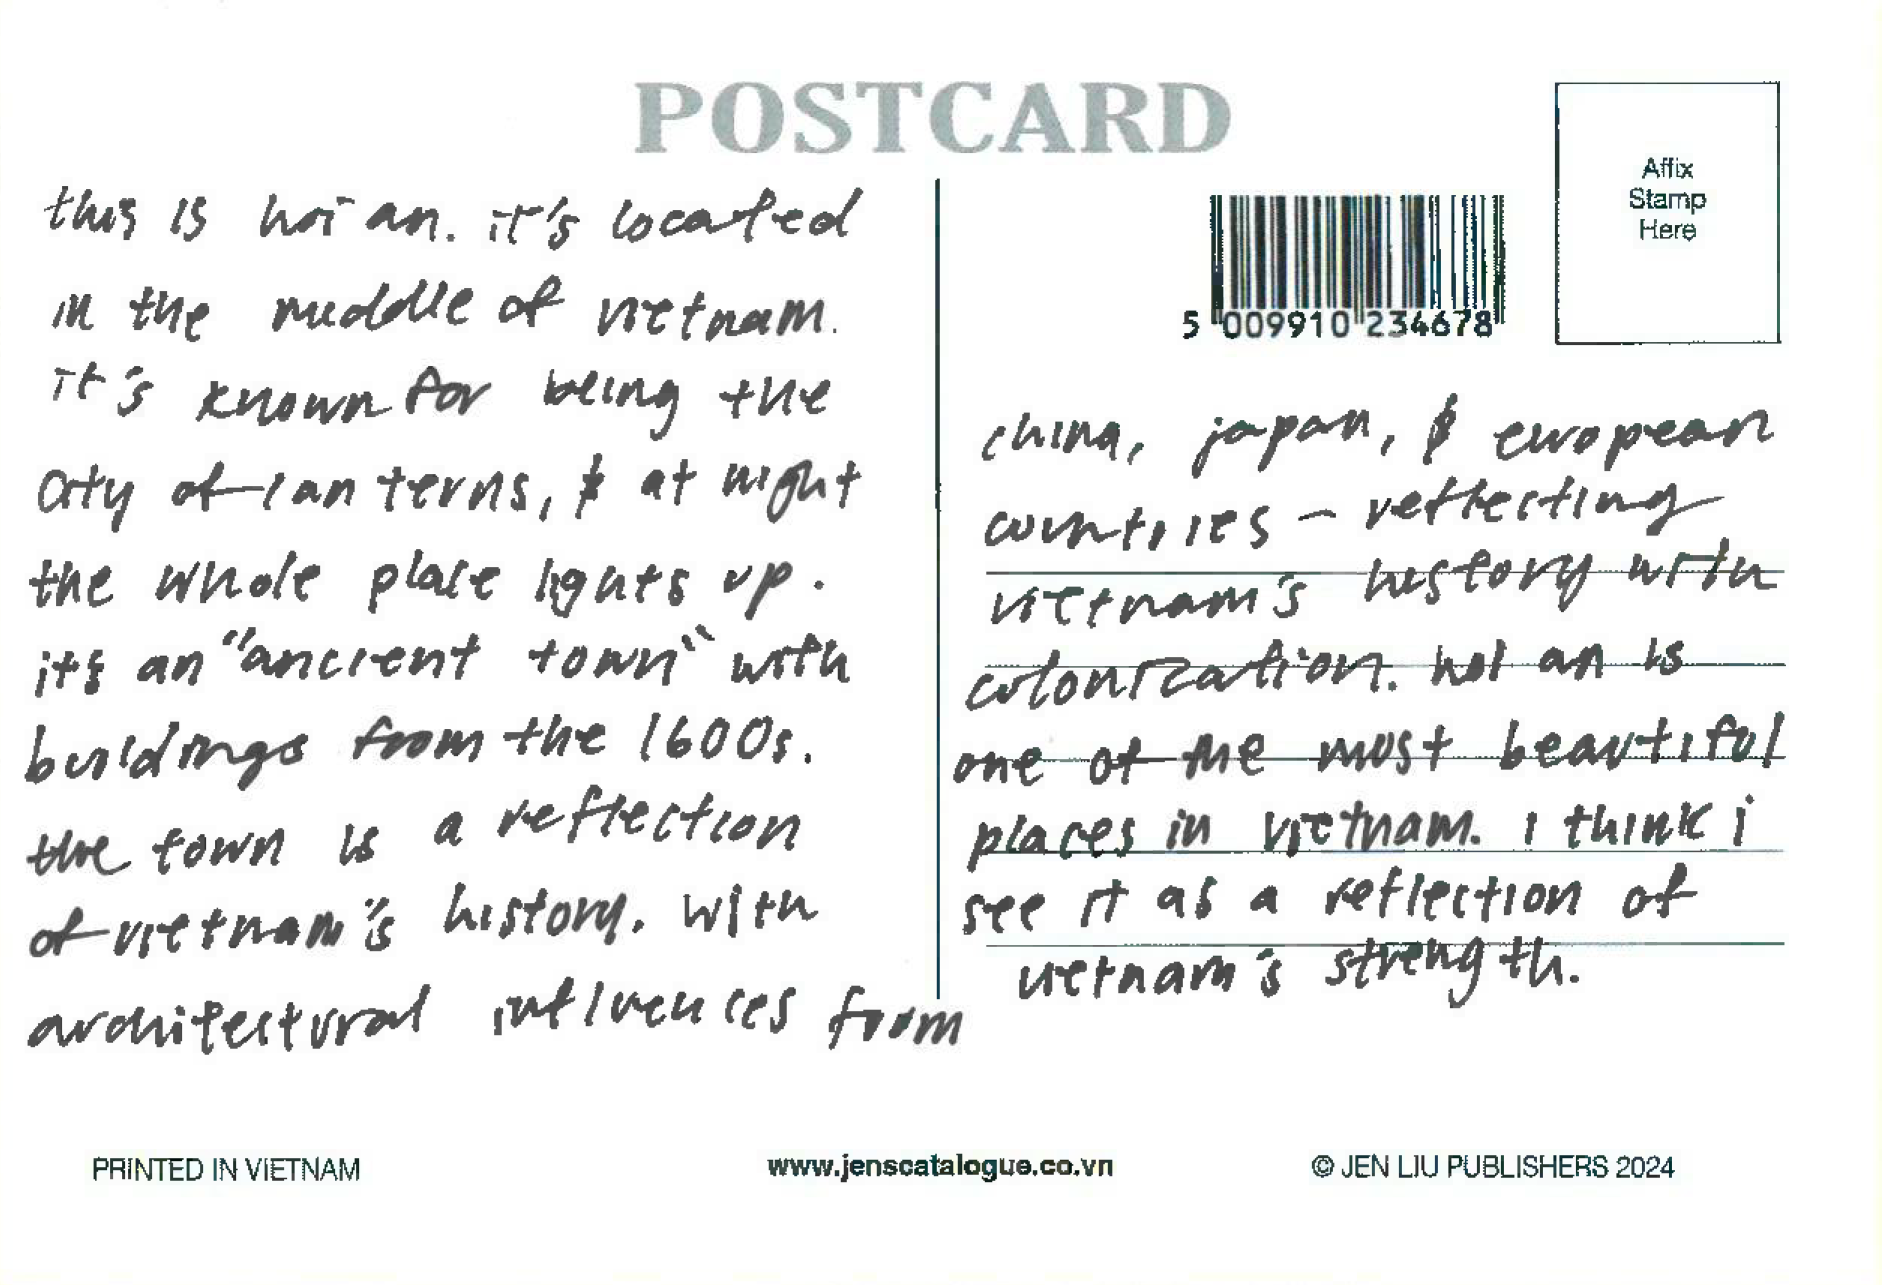 POSTCARD
this is hoi an. it's located
in the middle of vietnam.
it's known for being the
city of lanterns, & at night
the whole place lights up.
its an "ancient town" with
buildings from the 1600s.
the town is a reflection
of vietnam's history. with
architectural influences from
Affix
Stamp
Here
5 009910 234678
china, japan, & european
countries – reflecting
vietnam's history with
colonization. hoi an is
one of the most beautiful
places in vietnam. i think i
see it as a reflection of
vietnam's strength.
PRINTED IN VIETNAM
www.jenscatalogue.co.vn
© JEN LIU PUBLISHERS 2024